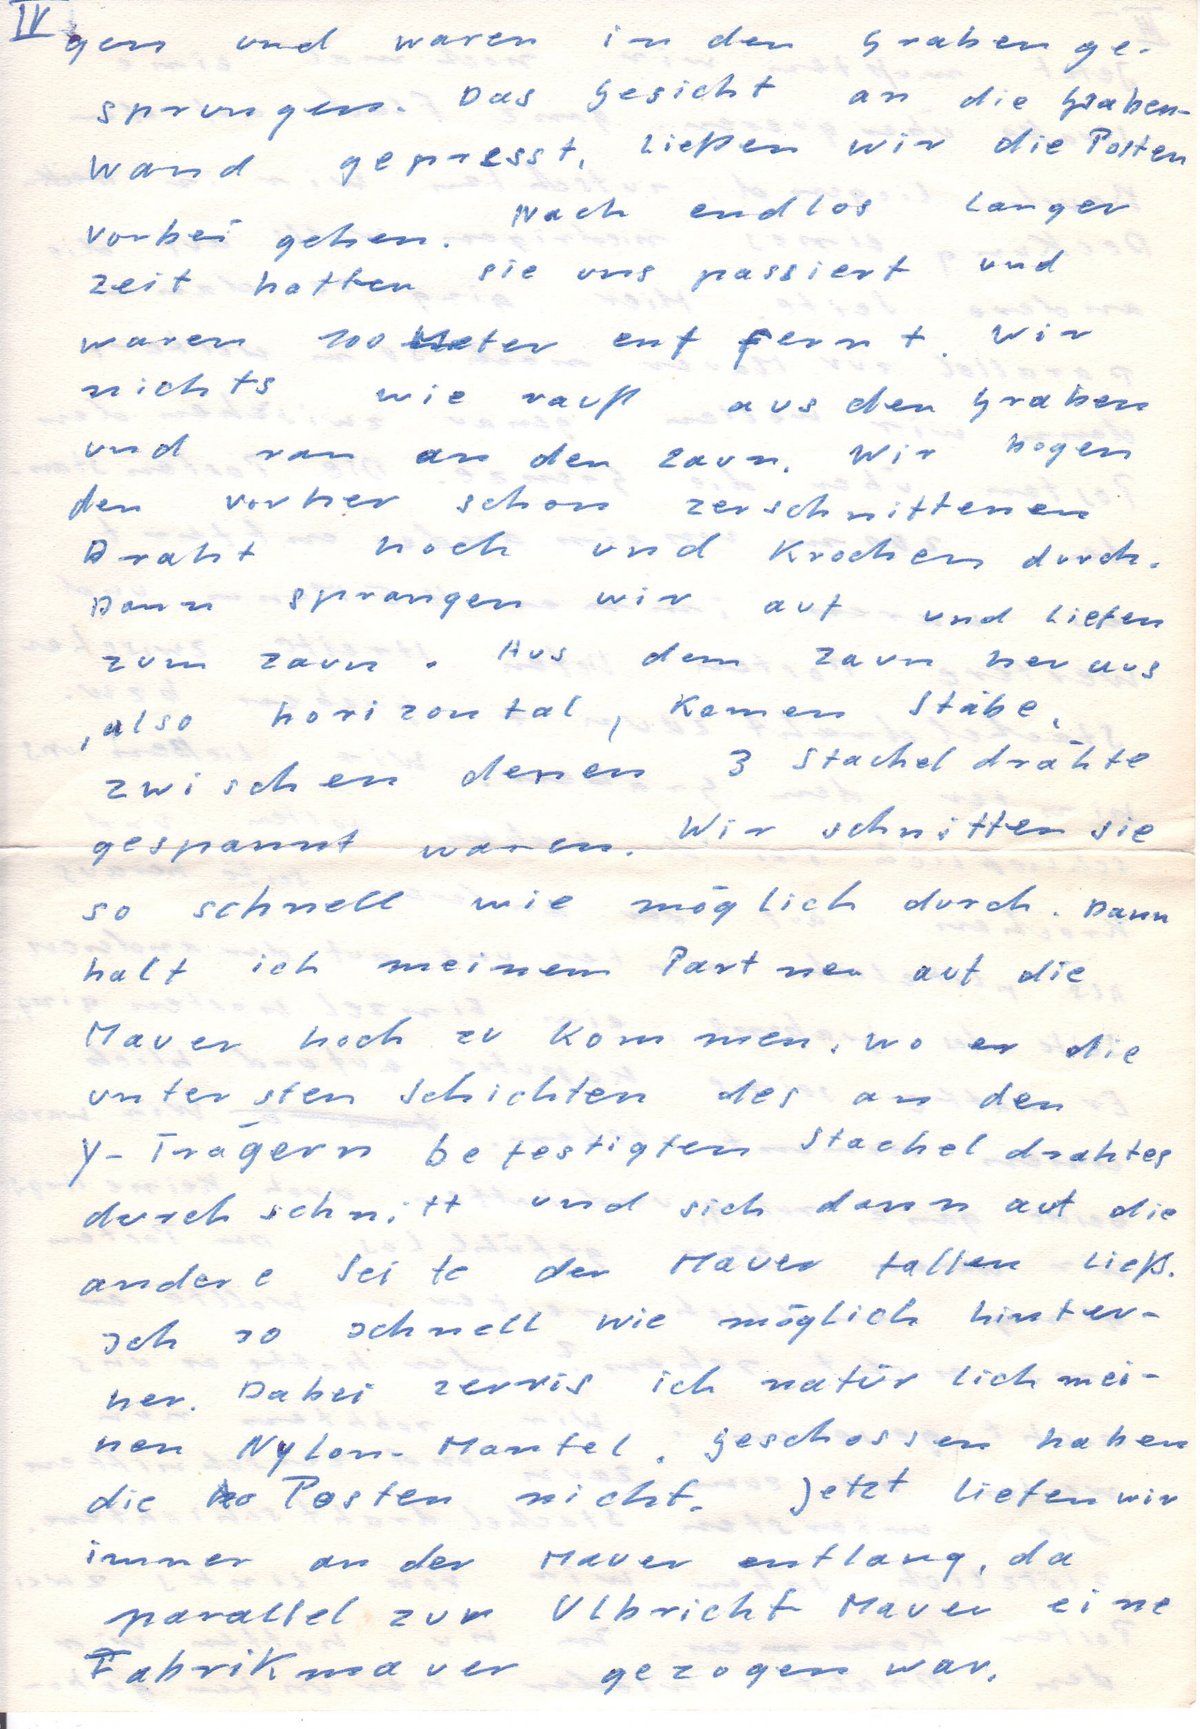 IV
gen und waren in den Graben ge-
sprungen. Das Gesicht an die Graben-
wand gepresst, ließen wir die Posten
vorbei gehen. Nach endlos langer
zeit hatten sie uns passiert und
waren 100 Meter entfernt. Wir
nichts wie rauf aus den Graben
und ran an den Zaun. Wir bogen
den vorher schon zerschnittenen
Draht hoch und krochen durch.
Dann sprangen wir auf und liefen
zum Zaun. Aus dem Zaun heraus
, also horizontal, kamen Stäbe,
zwischen denen 3 Stacheldrähte
gespannt waren. Wir schnitten sie
so schnell wie möglich durch. Dann
half ich meinem Partner auf die
Mauer hoch zu kommen, wo er die
untersten Schichten des an den
Y-Trägern befestigten Stacheldrahtes
durchschnitt und sich dann auf die
andere Seite der Mauer fallen ließ.
Ich so schnell wie möglich hinter-
her. Dabei zerris ich natürlich mei-
nen Nylon-Mantel. Geschossen haben
die Posten nicht. Jetzt liefen wir
immer an der Mauer entlang, da
parallel zur Ulbricht Mauer eine
Fabrikmauer gezogen war.